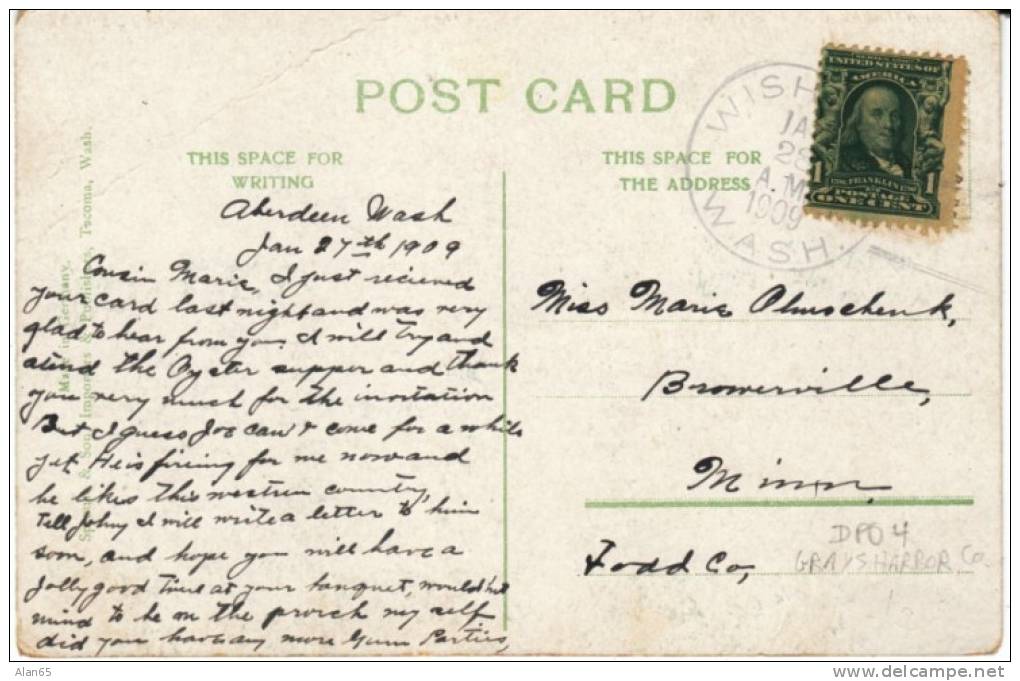 POST CARD
THIS SPACE FOR
WRITING
THIS SPACE FOR
THE ADDRESS
WISH
JA
28
A.M
1909
WASH.
UNITED STATES OF
AMERICA
1 FRANKLIN 1
POSTAGE
ONE CENT
Aberdeen Wash
Jan 27th 1909
Cousin Marie, I just recieved
your card last night and was very
glad to hear from you, I will try and
atend the Oyster supper and thank
you very much for the invitation
But I guess Joe can't come for a while
yet. He is fireing for me now and
he likes this western country,
tell Johny I will write a letter to him
soon, and hope you will have a
Jolly good time at your banquet, would not
mind to be on the porch my self
did you have any more Gum Parties,
Miss Marie Olmschenk,
Browerville,
Minn.
Todd Co,
DPO 4
GRAYS HARBOR Co.
Importers & Publishers, Tacoma, Wash.
Made in Germany.
Alan65
www.delcampe.net